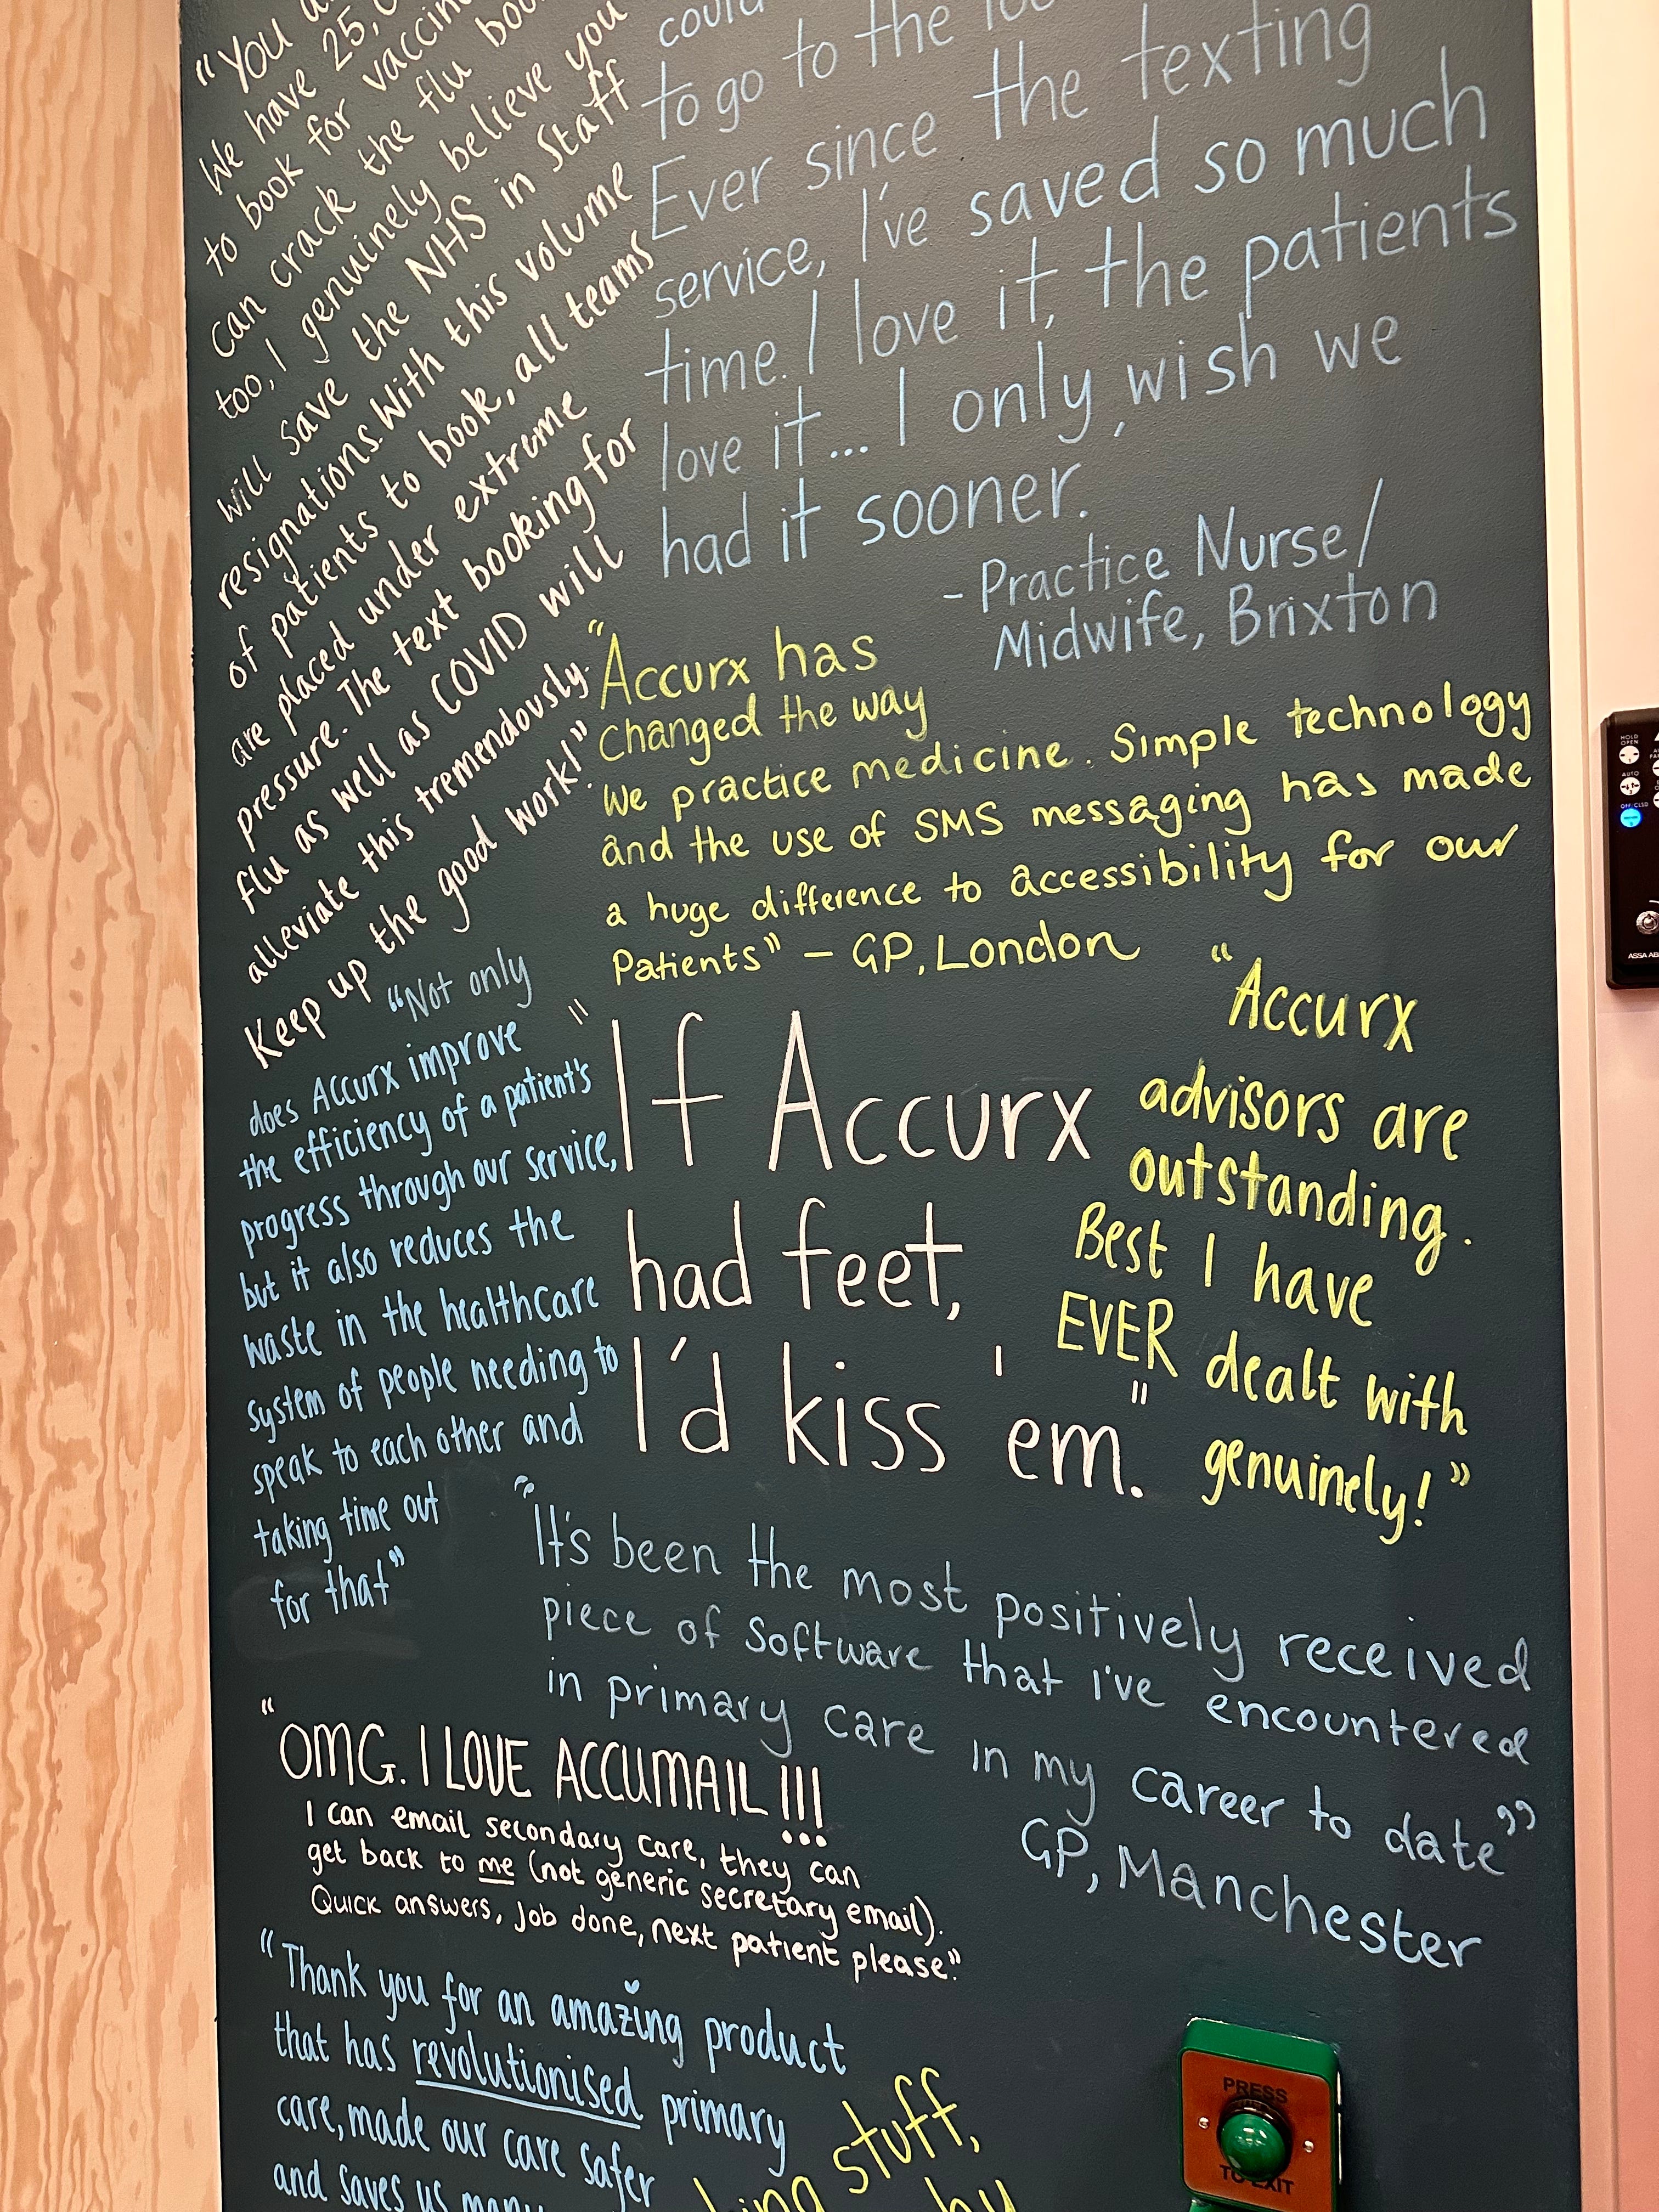 "You
We have 25,0
to book for vaccin
can crack the flu
too, I genuinely believe you
will save the NHS in Staff
resignations. With this volume
of patients to book, all teams
are placed under extreme
pressure. The text booking for
flu as well as COVID will
alleviate this tremendously.
Keep up the good work!"
could
to go to the
Ever since the texting
service, I've saved so much
time. I love it, the patients
love it... I only wish we
had it sooner.
- Practice Nurse/
Midwife, Brixton
"Accurx has
changed the way
We practice medicine. Simple technology
and the use of SMS messaging has made
a huge difference to accessibility for our
Patients" - GP, London
"Not only
does Accurx improve
the efficiency of a patient's
progress through our service,
but it also reduces the
waste in the healthcare
system of people needing to
speak to each other and
taking time out
for that"
"If Accurx
had feet,
I'd kiss 'em."
"Accurx
advisors are
outstanding.
Best I have
EVER dealt with
genuinely!"
"It's been the most positively received
piece of software that I've encountered
in primary care in my career to date"
GP, Manchester
"OMG. I LOVE ACCUMAIL!!!
I can email secondary care, they can
get back to me (not generic secretary email).
Quick answers, job done, next patient please."
"Thank you for an amazing product
that has revolutionised primary
care, made our care safer
and saves us many
stuff,
by
HOLD
OPEN
AUTO
OFF/CLSD
ASSA AB
PRESS
TO EXIT